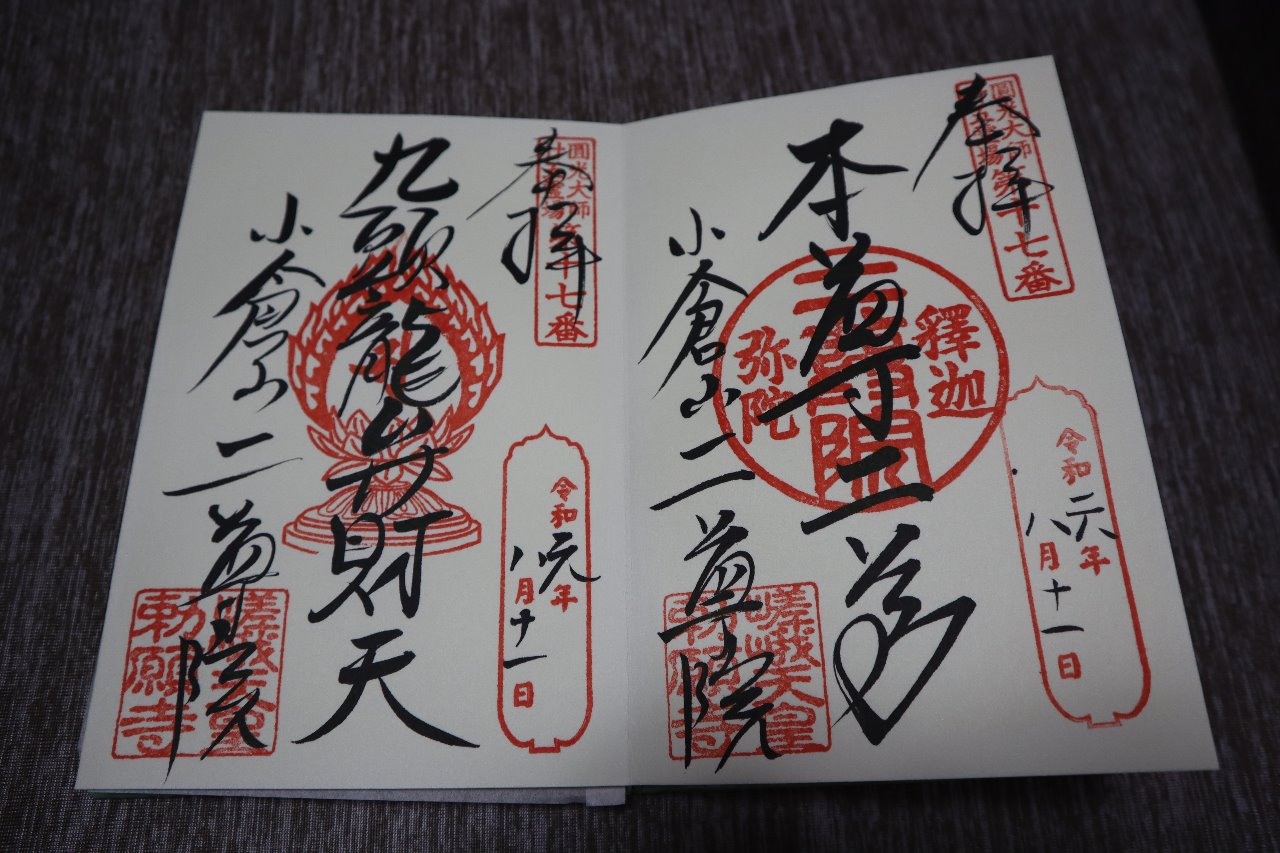 奉拝
圓光大師
廿五霊場第十七番
令和元年
八月十一日
本尊二尊
釋迦
二尊院
弥陀
小倉山二尊院
嵯峨天皇
勅願寺
奉拝
圓光大師
廿五霊場第十七番
令和元年
八月十一日
九頭龍弁財天
小倉山二尊院
嵯峨天皇
勅願寺